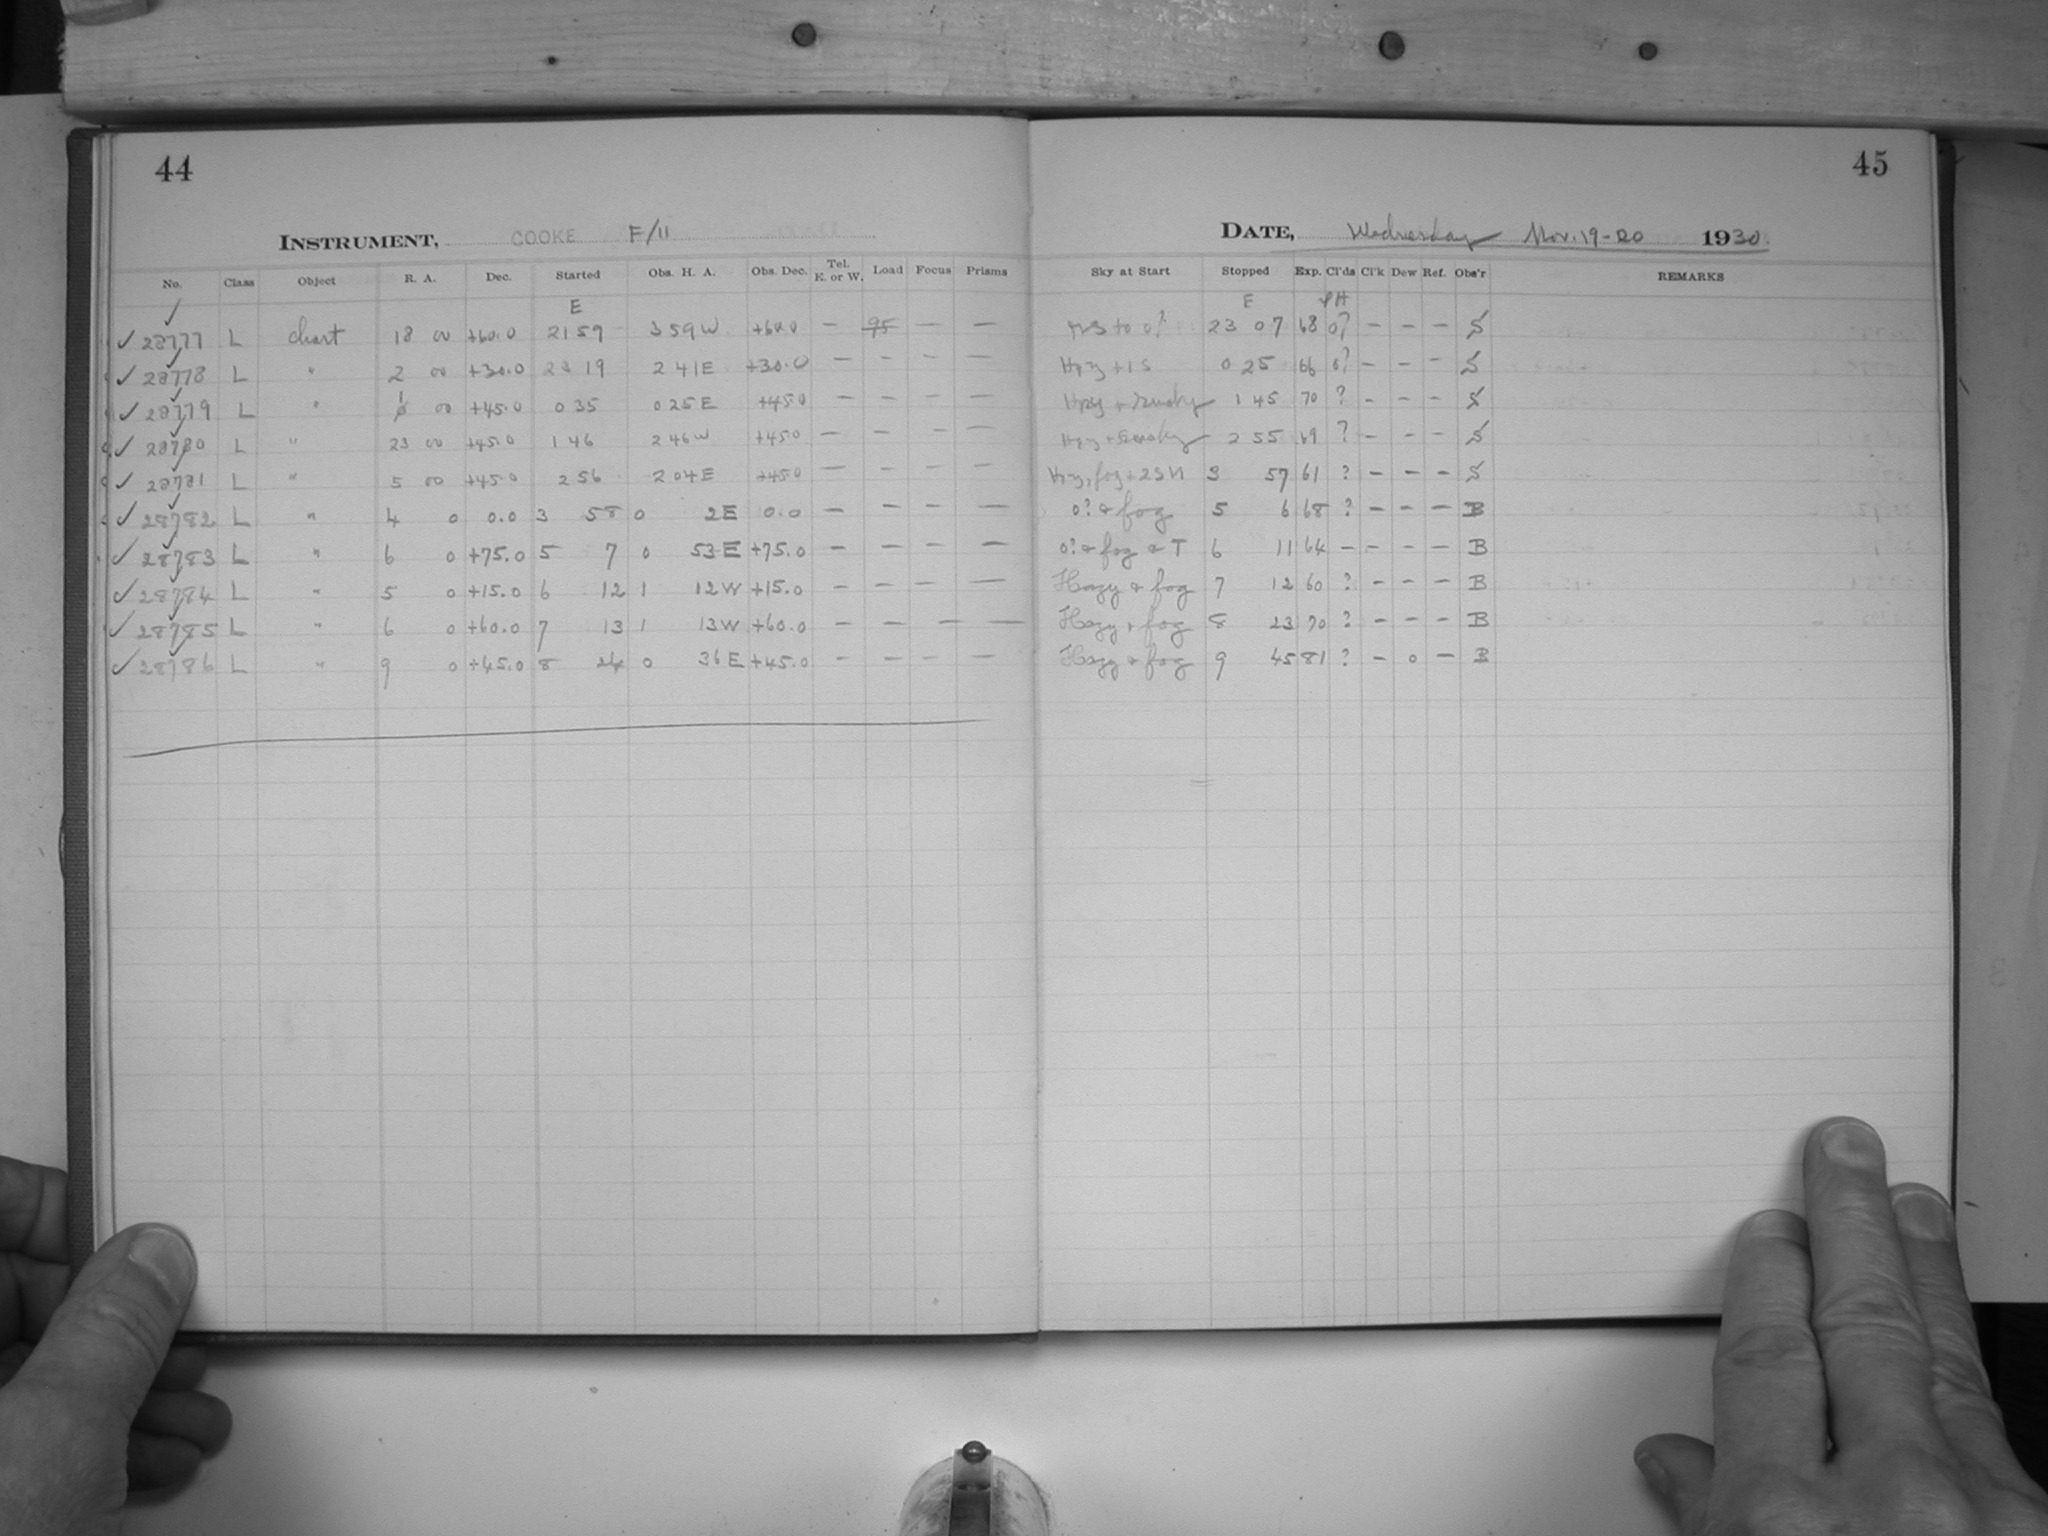 44
45
INSTRUMENT, COOKE F/11
DATE, Wednesday Nov. 19-20 1930.
No. Class Object R. A. Dec. Started Obs. H. A. Obs. Dec. Tel. E. or W. Load Focus Prisms Sky at Start Stopped Exp. Cl'ds Cl'k Dew Ref. Obs'r REMARKS
E E
✓ 28777 L chart 18 00 +60.0 21 59 3 59 W +60.0 — 95 — — to 0? 23 07 68 0? — — — S
✓ 28778 L " 2 00 +30.0 23 19 2 41 E +30.0 — — — — Hzy + 1S 0 25 66 0? — — — S
✓ 28779 L " 1 00 +45.0 0 35 0 25 E +45.0 — — — — Hzy + Smoky 1 45 70 ? - - - S
✓ 28780 L " 23 00 +45.0 1 46 2 46 W +45.0 — — — — Hzy + Smoky 2 55 69 ? - - - S
✓ 28781 L " 5 00 +45.0 2 56 2 04 E +45.0 — — — — Hzy, fog + 2SH 3 57 61 ? — — — S
✓ 28782 L " 4 0 0.0 3 58 0 2 E 0.0 — — — — 0? & fog 5 6 68 ? — — — B
✓ 28783 L " 6 0 +75.0 5 7 0 53 E +75.0 — — — — 0? & fog & T 6 11 64 — — — — B
✓ 28784 L " 5 0 +15.0 6 12 1 12 W +15.0 — — — — Hazy & fog 7 12 60 ? — — — B
✓ 28785 L " 6 0 +60.0 7 13 1 13 W +60.0 — — — — Hazy & fog 8 23 70 ? — — — B
✓ 28786 L " 9 0 +45.0 8 24 0 36 E +45.0 — — — — Hazy & fog 9 45 81 ? — 0 — B